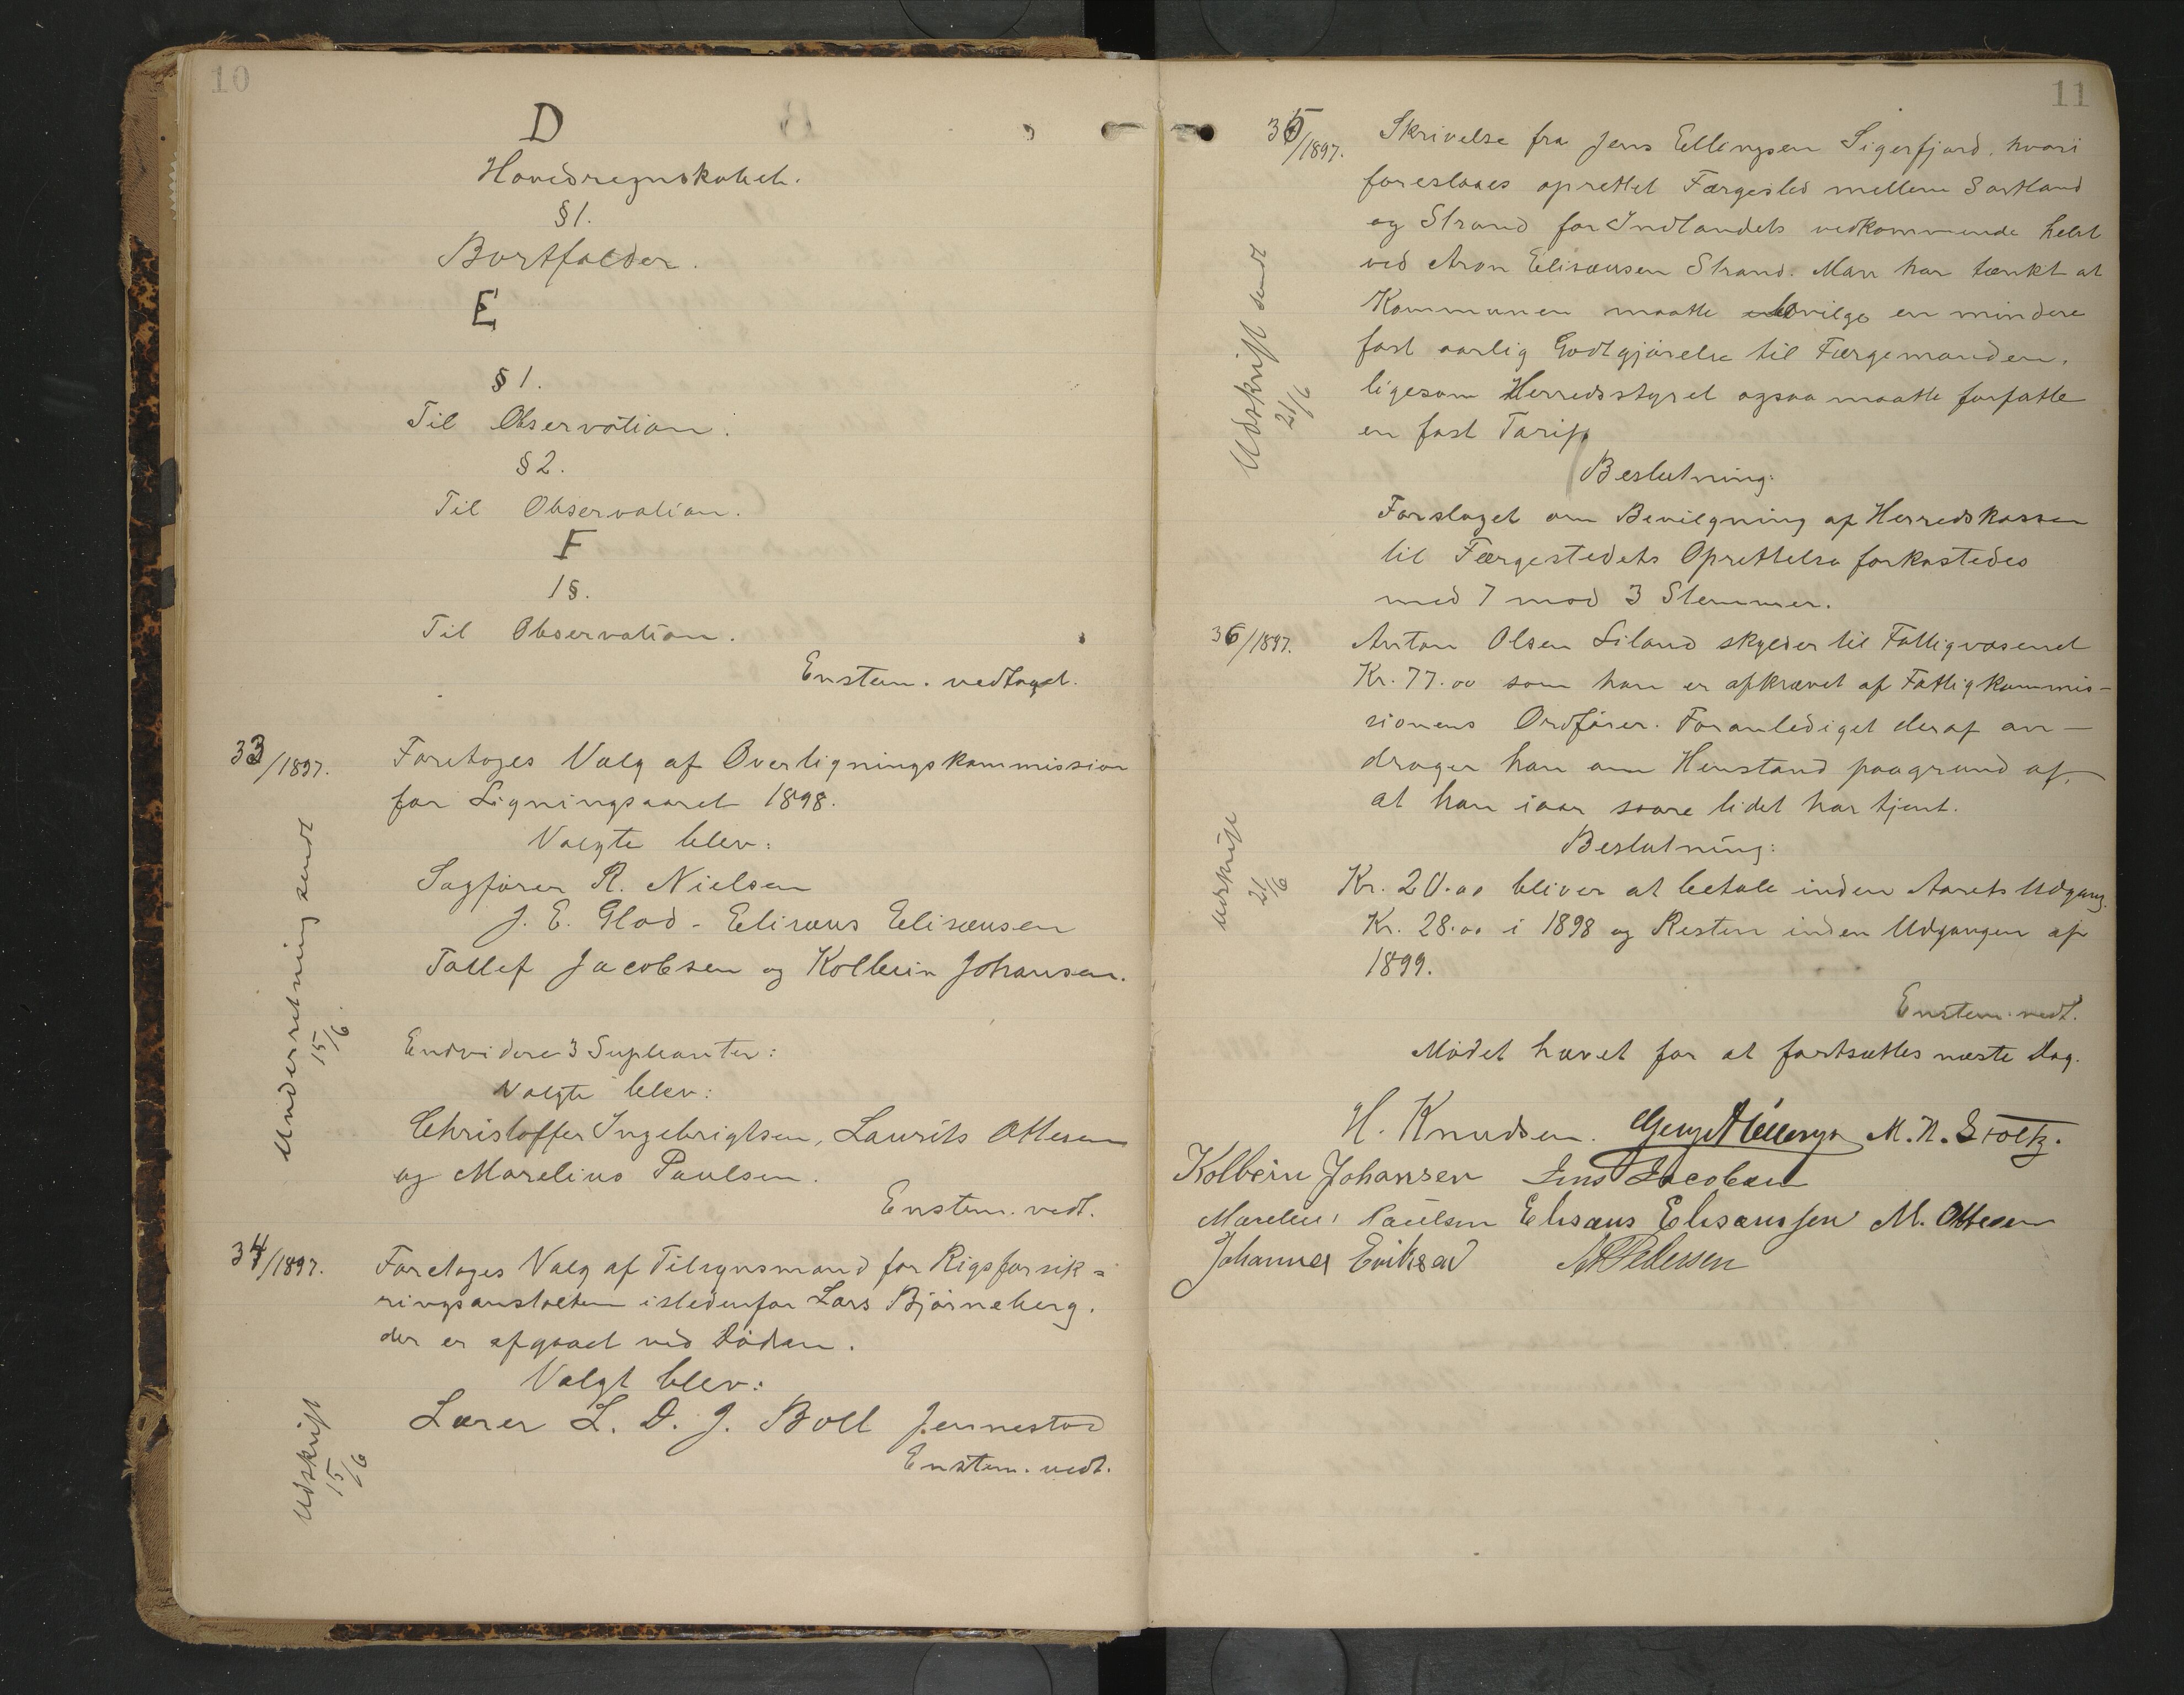 10
D
Hovedregnskabet.
§ 1.
Bortfalder.
E
§ 1.
Til Observation.
§ 2.
Til Observation.
F
1 §.
Til Observation.
Enstem. vedtaget.
33/1897. Foretoges Valg af Overligningskommission
for Ligningsaaret 1898.
Valgte blev:
Sagfører R. Nielsen
J. E. Glad - Elisæus Elisæusen
Tollef Jacobsen og Kolbein Johansen.
Underretning sendt
15/6.
Endvidere 3 Supleanter:
Valgte blev:
Christoffer Ingebrigtsen, Laurits Ottesen
og Marelius Paulsen.
Enstem. vedt.
34/1897. Foretoges Valg af Tilsynsmand for Rigsforsik=
ringsanstalten istedenfor Lars Bjørneberg.
der er afgaaet ved Døden.
Valgt blev:
Lærer L. D. J. Boll Jennestad
Enstem. vedt.
Udskrift
15/6
11
35/1897. Skrivelse fra Jens Ellingsen Sigerfjord, hvori
foreslaaes oprettet Færgested mellem Sortland
og Strand for Indlandets vedkommende helst
ved Aron Elisæusen Strand. Man har tænkt at
Kommunen maatte bevilge en mindre
fast aarlig Godtgjørelse til Færgemanden,
ligesom Herredsstyret ogsaa maatte forfatte
en fast Tarif.
Udskrift sendt
21/6
Beslutning:
Forslaget om Bevilgning af Herredskassen
til Færgestedets Oprettelse forkastedes
med 7 mod 3 Stemmer.
36/1897. Anton Olsen Liland skylder til Fattigvæsenet
Kr. 77.00 som han er afkrævet af Fattigkommis-
sionens Ordfører. Foranlediget deraf an-
drager han om Henstand paagrund af,
at han iaar svare lidet har tjent.
Beslutning:
Kr. 20.00 bliver at betale inden Aarets Udgang.
Kr. 28.00 i 1898 og Resten inden Udgangen af
1899.
Udskrift
21/6
Enstem. vedt.
Mødet hævet for at fortsættes næste Dag.
H. Knudsen. M. N. Stoltz.
Kolbein Johansen Jens Jacobsen
Marelius Paulsen Elisæus Elisæussen M. Ottesen
Johannes Eriksen Pedersen